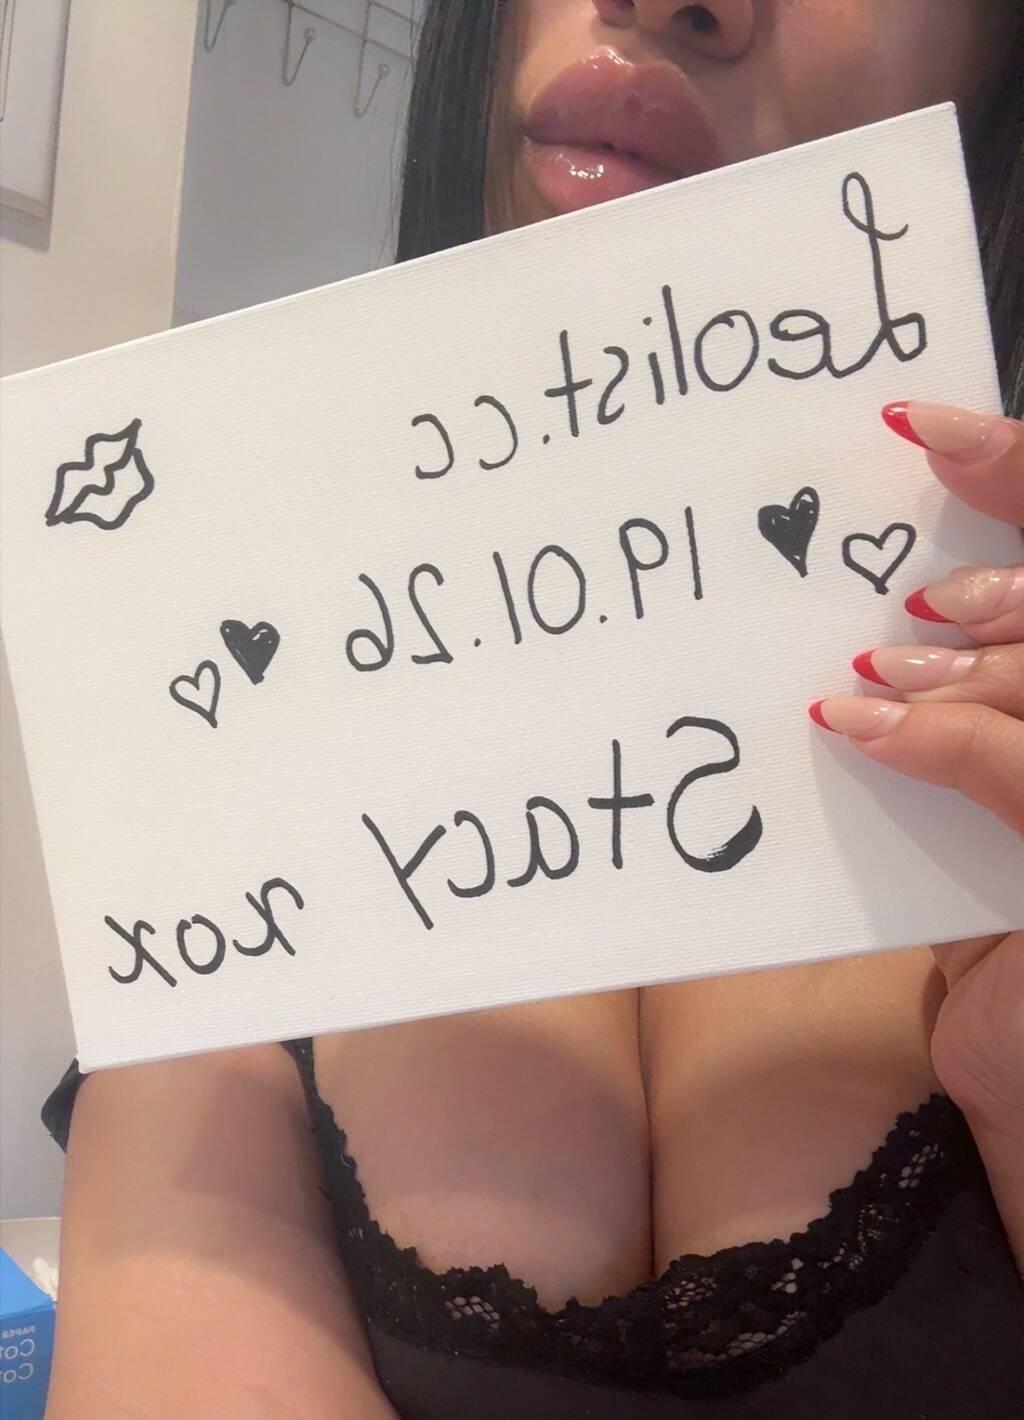 Leolist.cc
19.01.26
Stacy xox
PAPER
Co
Co